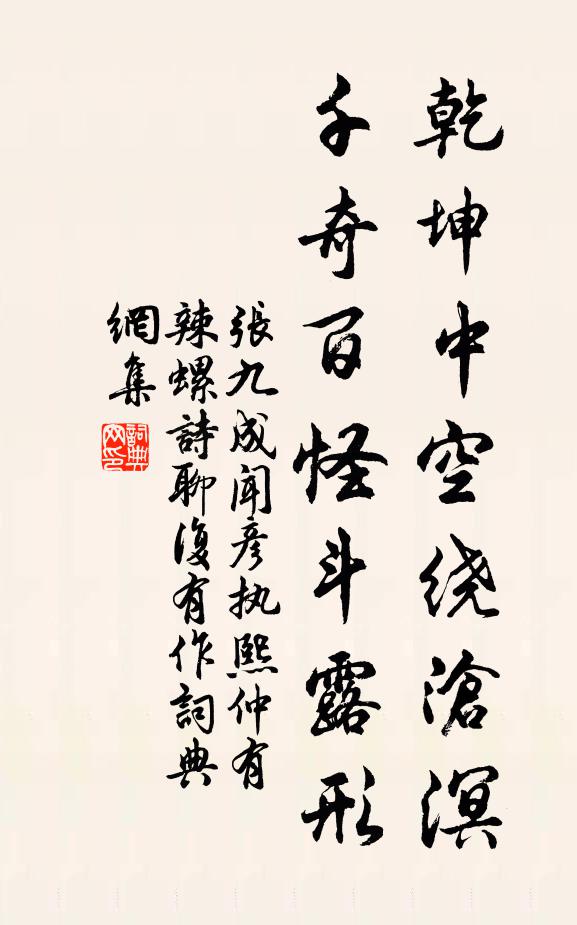 乾坤中空绕滄溟
千奇百怪斗露形
張九成闻彦执熙仲有
辣螺詩聊復有作詞典
網集
詞典網印